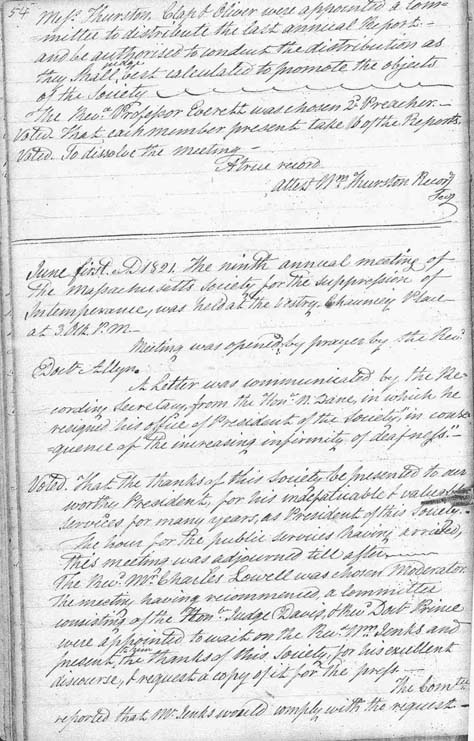 54
Messrs. Thurston, Clap & Oliver were appointed a Com-
mittee to distribute the last annual Report -
and be authorised to conduct the distribution as
they shall judge best calculated to promote the objects
of the Society
The Revd. Professor Everett was chosen 2d. Preacher. -
Voted. That each member present take 6 of the Reports.
Voted. To dissolve the meeting -
A true record
Attest Wm. Thurston Recorg
Secy
June first. AD 1821. The ninth annual meeting of
the Massachusetts Society for the suppression of
Intemperance, was held at the vestry, Chauncey Place
at 3. Olk P.M. -
Meeting was opened by prayer by the Revd.
Doctr. Allyn.
A Letter was communicated by the Re-
cording Secretary, from the Honl. N. Dane, in which he
resigned his office of President of the Society, "in conse
quence of the increasing infirmity of deafness." -
Voted. That the thanks of this Society be presented to our
worthy President, for his indefatigable & valuable
services, for many years, as President of this Society.
The hour for the public services having arrived,
this meeting was adjourned till after
The Revd. Mr. Charles Lowell was chosen Moderator.
The meeting having recommenced, a committee
consisting of the Honble Judge Davis, & Revd. Doct Prince
were appointed to wait on the Revd. Wm Jenks and
present to him the thanks of this Society, for his excellent
discourse, & request a copy of it for the press. -
The Comtee
reported that Mr. Jenks would comply with the request -